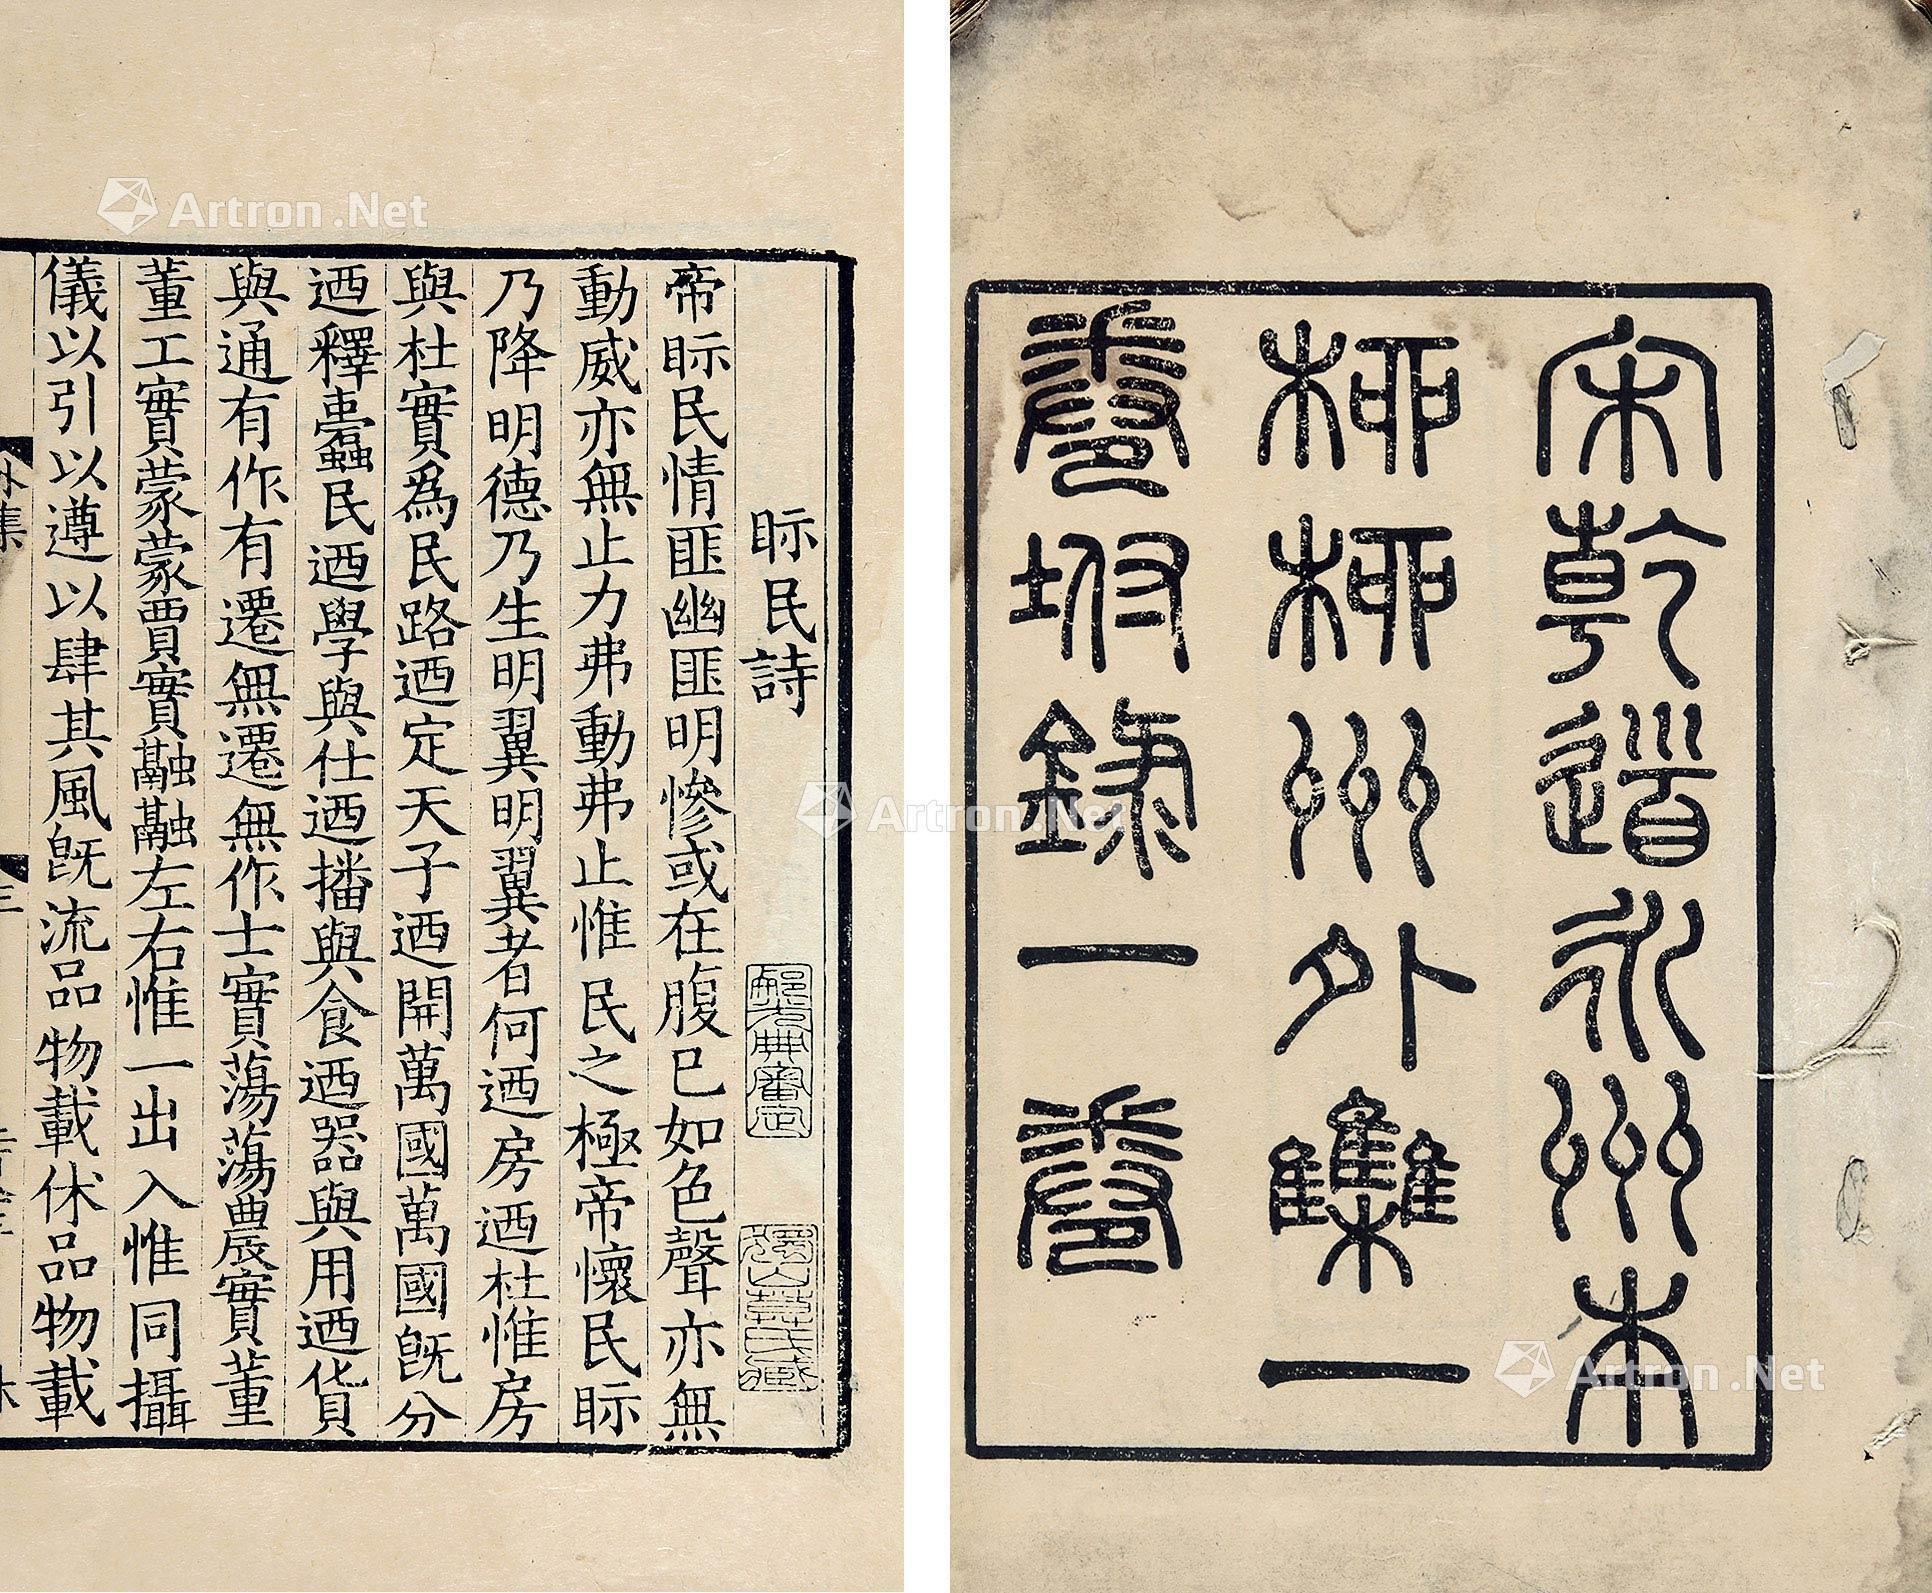 宋乾道永州本
柳柳州外集一
卷坿錄一卷
眎民詩
帝眎民情匪幽匪明慘或在腹已如色聲亦無
動威亦無止力弗動弗止惟民之極帝懷民眎
乃降明德乃生明翼明翼者何迺房迺杜惟房
與杜實爲民路迺定天子迺開萬國萬國旣分
迺釋蠹民迺學與仕迺播與食迺器與用迺貨
與通有作有遷無遷無作士實蕩蕩農實董
董工實蒙蒙賈實融融左右惟一出入惟同攝
儀以引以遵以肆其風旣流品物載休品物載
Artron.Net
Artron.Net
Artron.Net